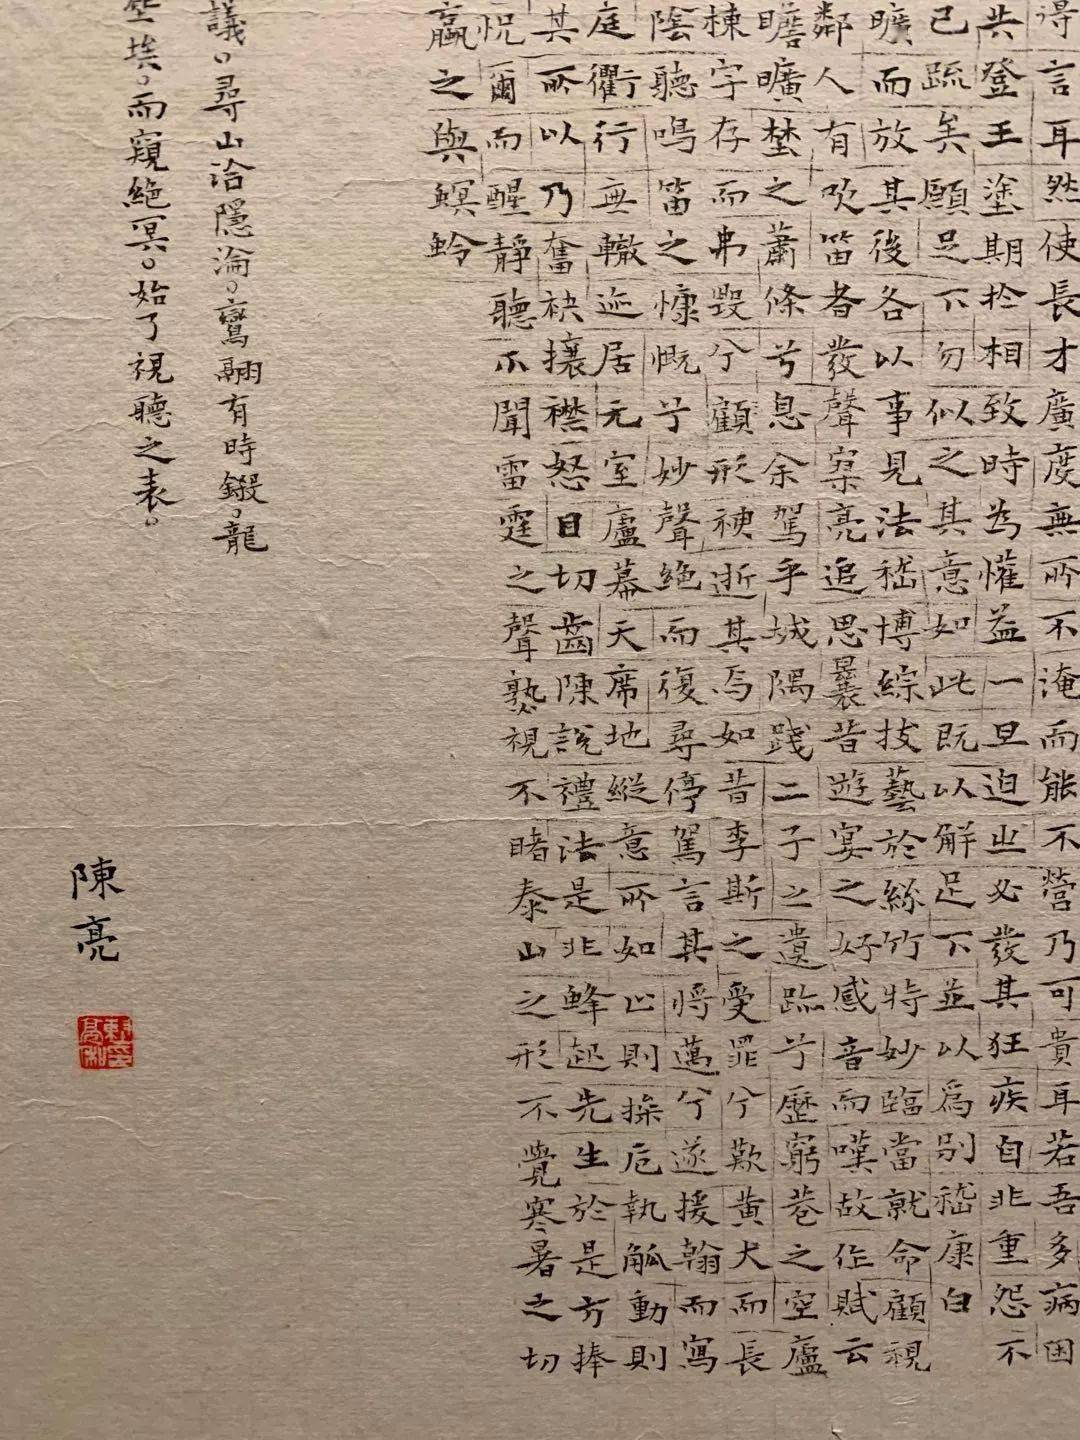 得言耳然使長才廣度無所不淹而能不營乃可貴耳若吾多病困
共登王塗期於相致時為懽益一旦迫之必發其狂疾自非重怨不
已疏矣願足下勿似之其意如此既以解足下並以為別嵇康白
曠而放其後各以事見法嵇博綜技藝於絲竹特妙臨當就命顧視
鄰人有吹笛者發聲寥亮追思曩昔遊宴之好感音而嘆故作賦云
瞻曠埜之蕭條兮息余駕乎城隅踐二子之遺跡兮歷窮巷之空廬
棟宇存而弗毀兮顧形神逝其焉如昔李斯之受罪兮歎黃犬而長
陰聽鳴笛之慷慨兮妙聲絕而復尋停駕言其將邁兮遂援翰而寫
庭衢行無轍迹居无室廬幕天席地縱意所如止則操卮執觚動則
其所以乃奮袂攘襟怒目切齒陳說禮法是非蜂起先生於是方捧
怳爾而醒靜聽不聞雷霆之聲熟視不睹泰山之形不覺寒暑之切
蠃之與螟蛉
議。尋山洽隱淪。鸞翮有時鎩。龍
埃。而窺絕冥。始了視聽之表。
陳亮